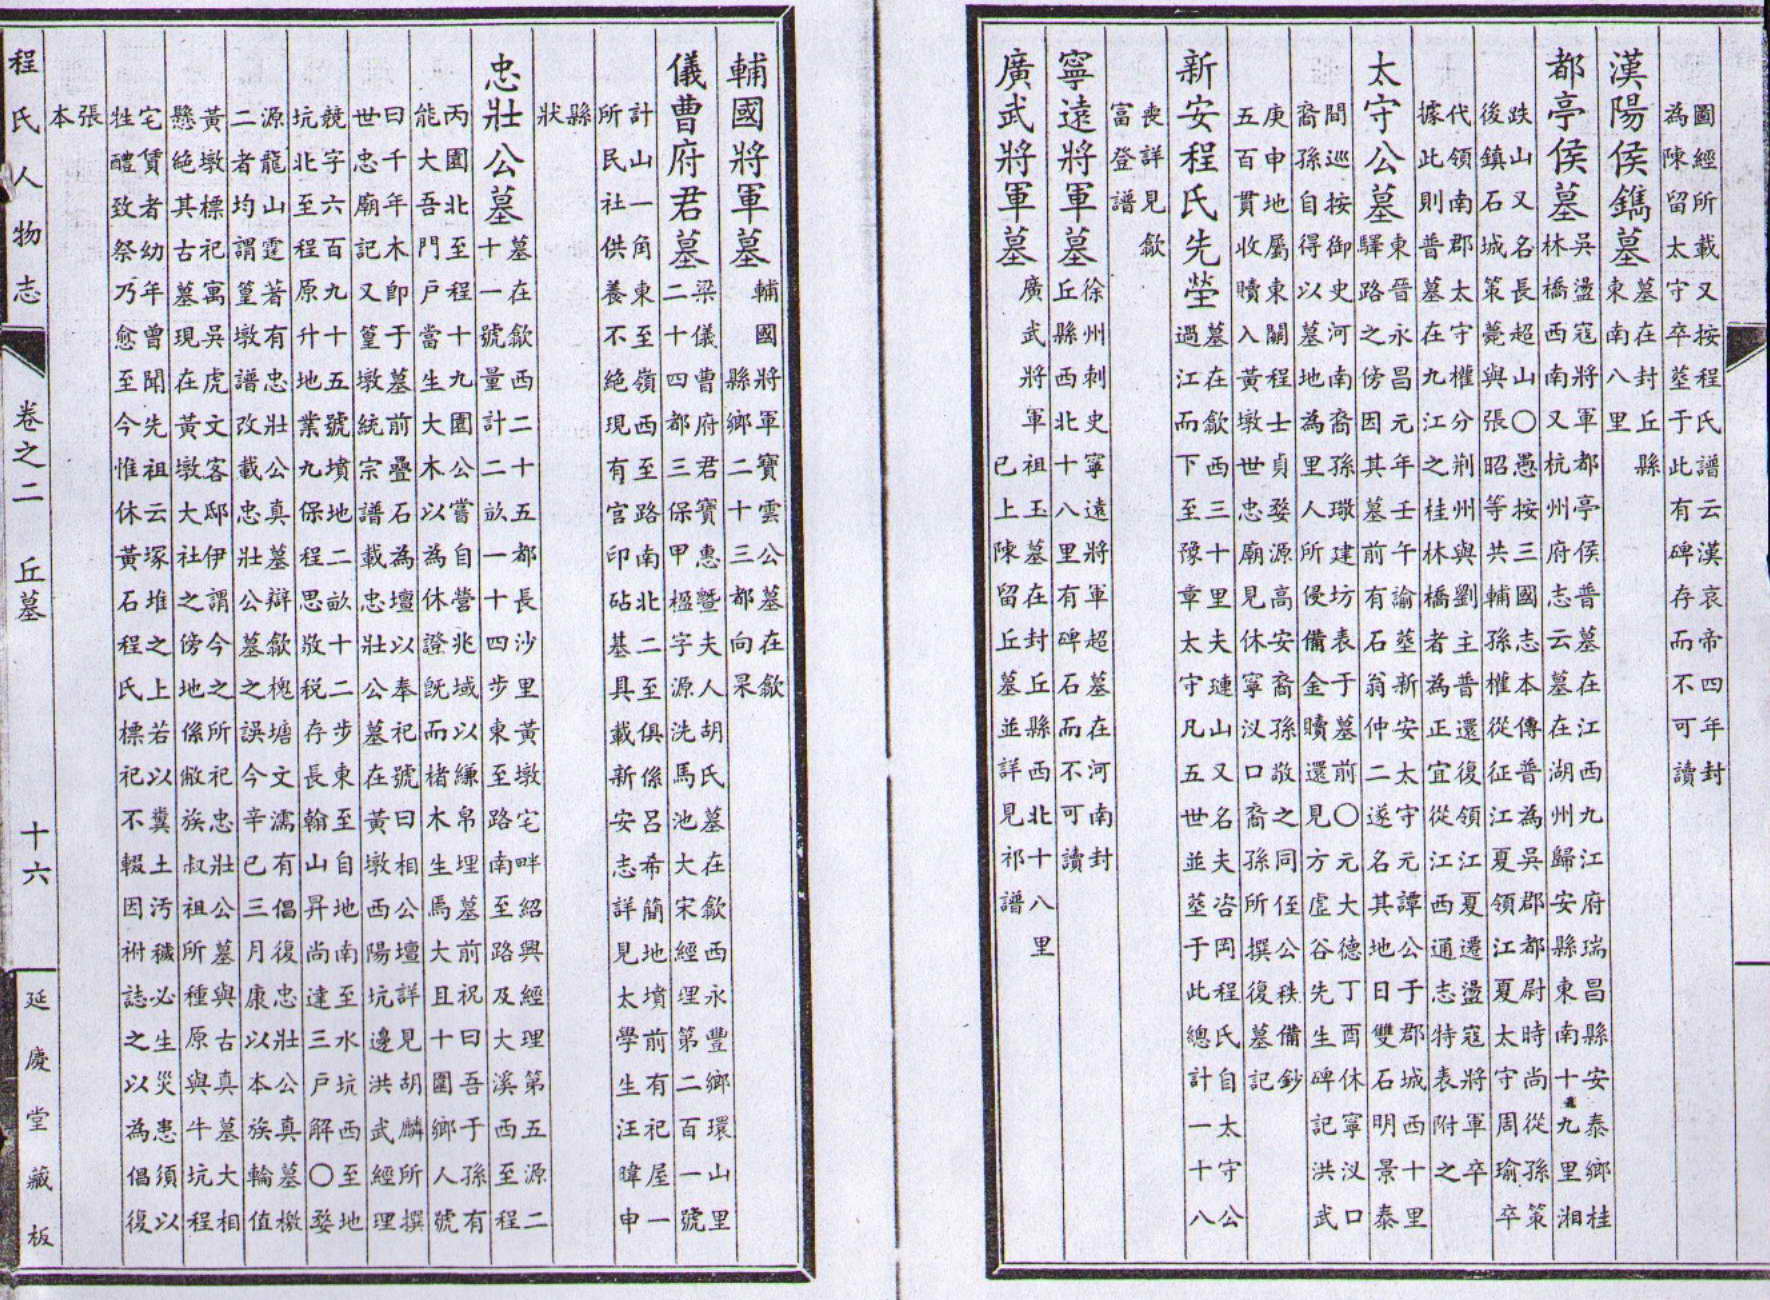 圖經所載又按程氏譜云漢哀帝四年封
為陳留太守卒塟于此有碑存而不可讀
漢陽侯鐫墓
墓在封丘縣
東南八里
都亭侯墓
吳盪寇將軍都亭侯普墓在江西九江府瑞昌縣安泰鄉桂
林橋西南又杭州府志云墓在湖州歸安縣東南十九里湘
跌山又名長超山〇愚按三國志本傳普為吳郡都尉時尚從孫策
後鎮石城策薨與張昭等共輔孫權從征江夏領江夏太守周瑜卒
代領南郡太守權分荆州與劉主普還復領江夏遷盪寇將軍卒
據此則普墓在九江之桂林橋者為正宜從江西通志特表附之
太守公墓
東晉永昌元年壬午諭塟新安太守元譚公于郡城西十里
驛路之傍因其墓前有石翁仲二遂名其地日雙石明景泰
間巡按御史河南裔孫璥建坊表于墓前〇元大德丁酉休寧汊口
裔孫自得以墓地為里人所侵備金贖還見方虛谷先生碑記洪武
庚申地屬東關程士貞婺源高安裔孫敬之同侄公秩備鈔
五百貫收贖入黃墩世忠廟見休寧汊口裔孫所撰復墓記
新安程氏先塋
墓在歙西三十里夫璉山又名夫咨岡程氏自太守公
過江而下至豫章太守凡五世並塟于此總計一十八
喪詳見歙
富登譜
寧遠將軍墓
徐州刺史寧遠將軍超墓在河南封
丘縣西北十八里有碑石而不可讀
廣武將軍墓
廣武將軍祖玉墓在封丘縣西北十八里
已上陳留丘墓並詳見祁譜
輔國將軍墓
輔國將軍寶雲公墓在歙
縣鄉二十三都向杲
儀曹府君墓
梁儀曹府君寶惠曁夫人胡氏墓在歙西永豐鄉環山里
二十四都三保甲楹字源洗馬池大宋經理第二百一號
計山一角東至嶺西至路南北二至俱係呂希簡地墳前有祀屋一
所民社供養不絶現有官印砧基具載新安志詳見太學生汪暐申
縣
狀
忠壯公墓
墓在歙西二十五都長沙里黃墩宅畔紹興經理第五源二
十一號量計二畝一十四步東至路南至路及大溪西至程
丙園北至程十九園公嘗自營兆域以縑帛埋墓前祝曰吾于孫有
能大吾門戶當生大木以為休證旣而楮木生焉大且十圍鄉人號
曰千年木卽于墓前疊石為壇以奉祀號曰相公壇詳見胡麟所撰
世忠廟記又篁墩統宗譜載忠壯公墓在黃墩西陽坑邊洪武經理
競字六百九十五號墳地二畝十二步東至自地南至水坑西至地
坑北至程原升地業九保程思敬稅存長翰山昇尚達三戶解〇婺
源龍山霆著有忠壯公真墓辯歙槐塘文濡有倡復忠壯公真墓檄
二者均謂篁墩譜改載忠壯公墓之誤今辛巳三月康以本族輪值
黃墩標祀寓吳虎文客邸伊謂今之所祀忠壯公墓與古真墓大相
懸絶其古墓現在黃墩大社之傍地係敝族叔祖所種原與牛坑程
宅賃者幼年曾聞先祖云塚堆之上若以糞土污穢必生災患須以
牲醴致祭乃愈至今惟休黃石程氏標祀不輟因祔誌之以為倡復
張
本
程氏人物志
卷之二 丘墓
十六
延慶堂藏板